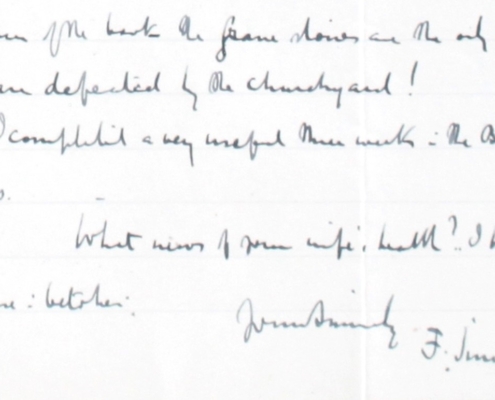 of the book the Grave stones are the only
defected by the churchyard!
I completed a very useful three weeks in the B
What news of your wife's health? I h
Yours Sincerely
F.